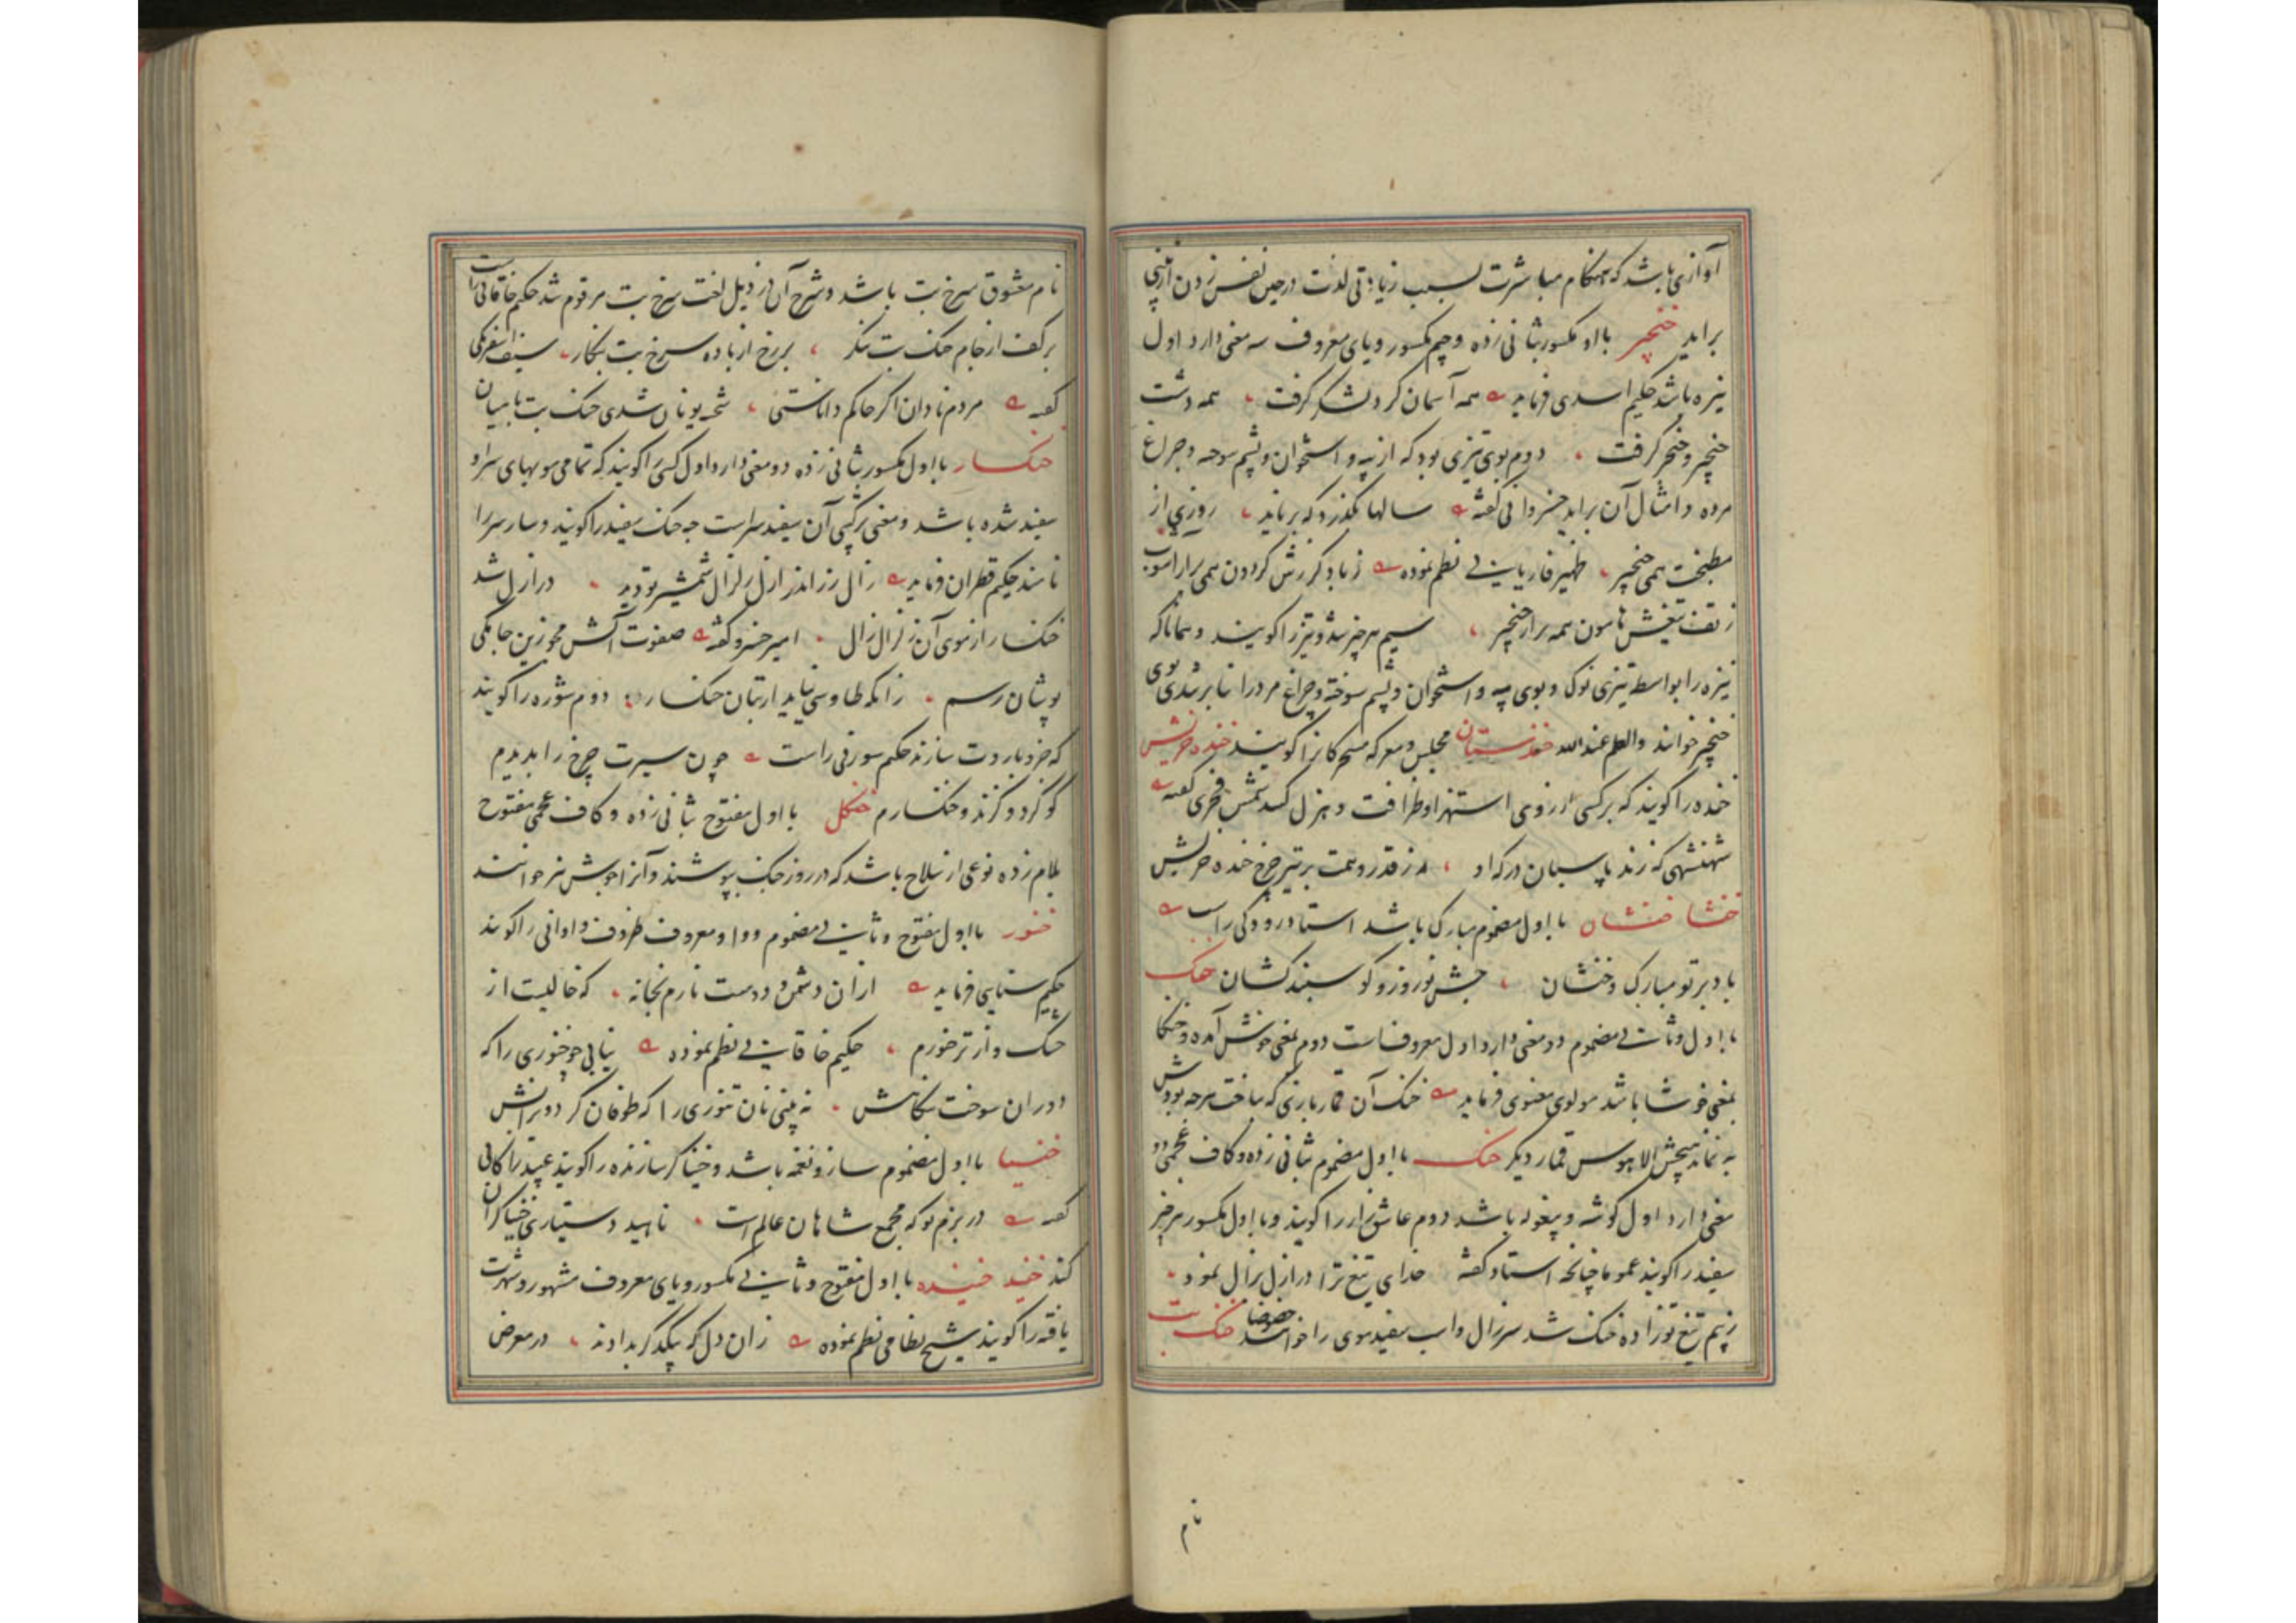 آوازی باشد که هنگام مباشرت بسبب زیادتی لذت در حین نفس زدن از بینی
براید خنجیر با او مکسور بثانی زده و جیم مکسور و یای معروف سه معنی دارد اول
نیزه باشد حکیم اسدی فرماید همه آسمان گرد لشکر گرفت همه دشت
خنجیر و خنجر گرفت دوم بوی تیزی بود که از پیه و استخوان و پشم سوخته و چراغ
مرده و امثال آن براید خسروانی گفته سالها بگذرد که برناید روزی از
مطبخت همی خنجیر ظهیر فاریابی نظم نموده ز باد گرزش گردون همی برارد
ز تف تیغش هامون همه برار خنجیر سیم هر چیز تند و تیز را گویند و همانا که
نیزه را بواسطه تیزی نوک و بوی پیه و استخوان و پشم سوخته و چراغ مرده را بنا بر تندی بوی
خنجیر خوانند والعلم عند الله خندستان مجلس و معرکه مسخرگان را گویند خنده خریش
خنده را گویند که بر کسی از روی استهزا و ظرافت و هزل کنند شمس فخری گفته
شهنشهی که زند پاسبان درگه او ز قدر و همت بر تیر چرخ خنده خریش
خنشا خنشان با اول مضموم مبارک باشد استاد رودکی راست
باد بر تو مبارک و خنشان جشن نوروز و گوسپند کشان خنک
با اول و ثانی مضموم دو معنی دارد اول معروفست دوم بمعنی خوش آمده و خنکا
بمعنی خوشا باشد مولوی معنوی فرماید خنک آن قماربازی که بباخت هر چه بودش
به نماند هیچش الا هوس قمار دیگر خنک با اول مضموم بثانی زده و کاف عجمی دو
معنی دارد اول گوشه و بیغوله باشد دوم عاشق زار را گویند و با اول مکسور هر چیز
سفید را گویند عموما چنانچه استاد گفته خدای تیغ ترا در ازل بزال نمود
ز بیم تیغ تو زاده خنک شد سر زال و اسب سفید موی را خوانند خصوصا خنک بت
نام
نام معشوق سرخ بت باشد و شرح آن در ذیل لغت سرخ بت مرقوم شد حکیم خاقانی راست
بر کف از جام خنک بت بنگر بر رخ از باده سرخ بت بنگار سیف اسفرنگی
گفته مردم نادان اگر حاکم داناستی شحنه یونان شدی خنک بت بامیان
خنکسار با اول مکسور بثانی زده دو معنی دارد اول کسی را گویند که تمامی مویهای سر او
سفید شده باشد و معنی ترکیبی آن سفید سراست چه خنک سفید را گویند و سار سر را
نامند حکیم قطران فرماید زال زر اندر ازل زلزال شمشیر تو دید در ازل شد
خنکسار از موی آن زلزال زال امیر خسرو گفته صفوت آتش مجو زین جامگی
پوشان رسم زانکه طاوسی نیاید از تبان خنکسار دوم شوره را گویند
که جزو باروت سازند حکیم سوزنی راست چون سیرت چرخ را بدیدم
کوکرد و کزند و خنکسارم خنکل با اول مفتوح بثانی زده و کاف عجمی مفتوح
بلام زده نوعی از سلاح باشد که در روز جنگ بپوشند و آنرا جوشن نیز خوانند
خنور با اول مفتوح و ثانی مضموم و واو معروف ظروف و اوانی را گویند
حکیم سنایی فرماید ازان دشمن و دوست نارم بخانه که خالیست از
خشک و از تر خنورم حکیم خاقانی نظم نموده نیابی جو خنوری را که
دوران سوخت بنگاهش نه بینی نان تنوری را که طوفان کرد ویرانش
خنیا با اول مضموم ساز و نغمه باشد و خنیاگر سازنده را گویند عبید زاکانی
گفته در بزم تو که مجمع شاهان عالم است ناهید دستیاری خنیاگران
کند خنید خنیده با اول مفتوح و ثانی مکسور و یای معروف مشهور و شهرت
یافته را گویند شیخ نظامی نظم نموده زان دل که بیکدگر بدادند در معرض